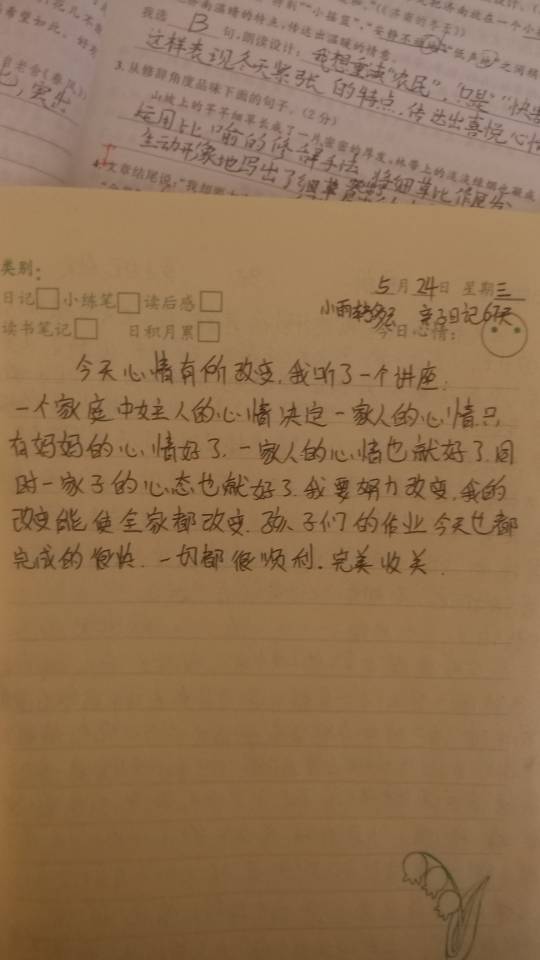 我选 B 句,朗读设计:我想重读"农民","只是""快
这样表现冬天紧张的特点,传达出喜悦心情
3.从修辞角度品味下面的句子。(2分)
运用比喻的修辞手法 将细草比作
生动形象地写出了细草
4.文章结尾说:"我想
类别:
5月24日 星期三
日记 小练笔 读后感
小雨转多云 亲子日记67天
读书笔记 日积月累
今日心情:
今天心情有所改变,我听了一个讲座:
一个家庭中女主人的心情决定一家人的心情只
有妈妈的心情好了,一家人的心情也就好了.同
时一家子的心态也就好了.我要努力改变,我的
改变能使全家都改变.孩子们的作业今天也都
完成的很快.一切都很顺利.完美收关.